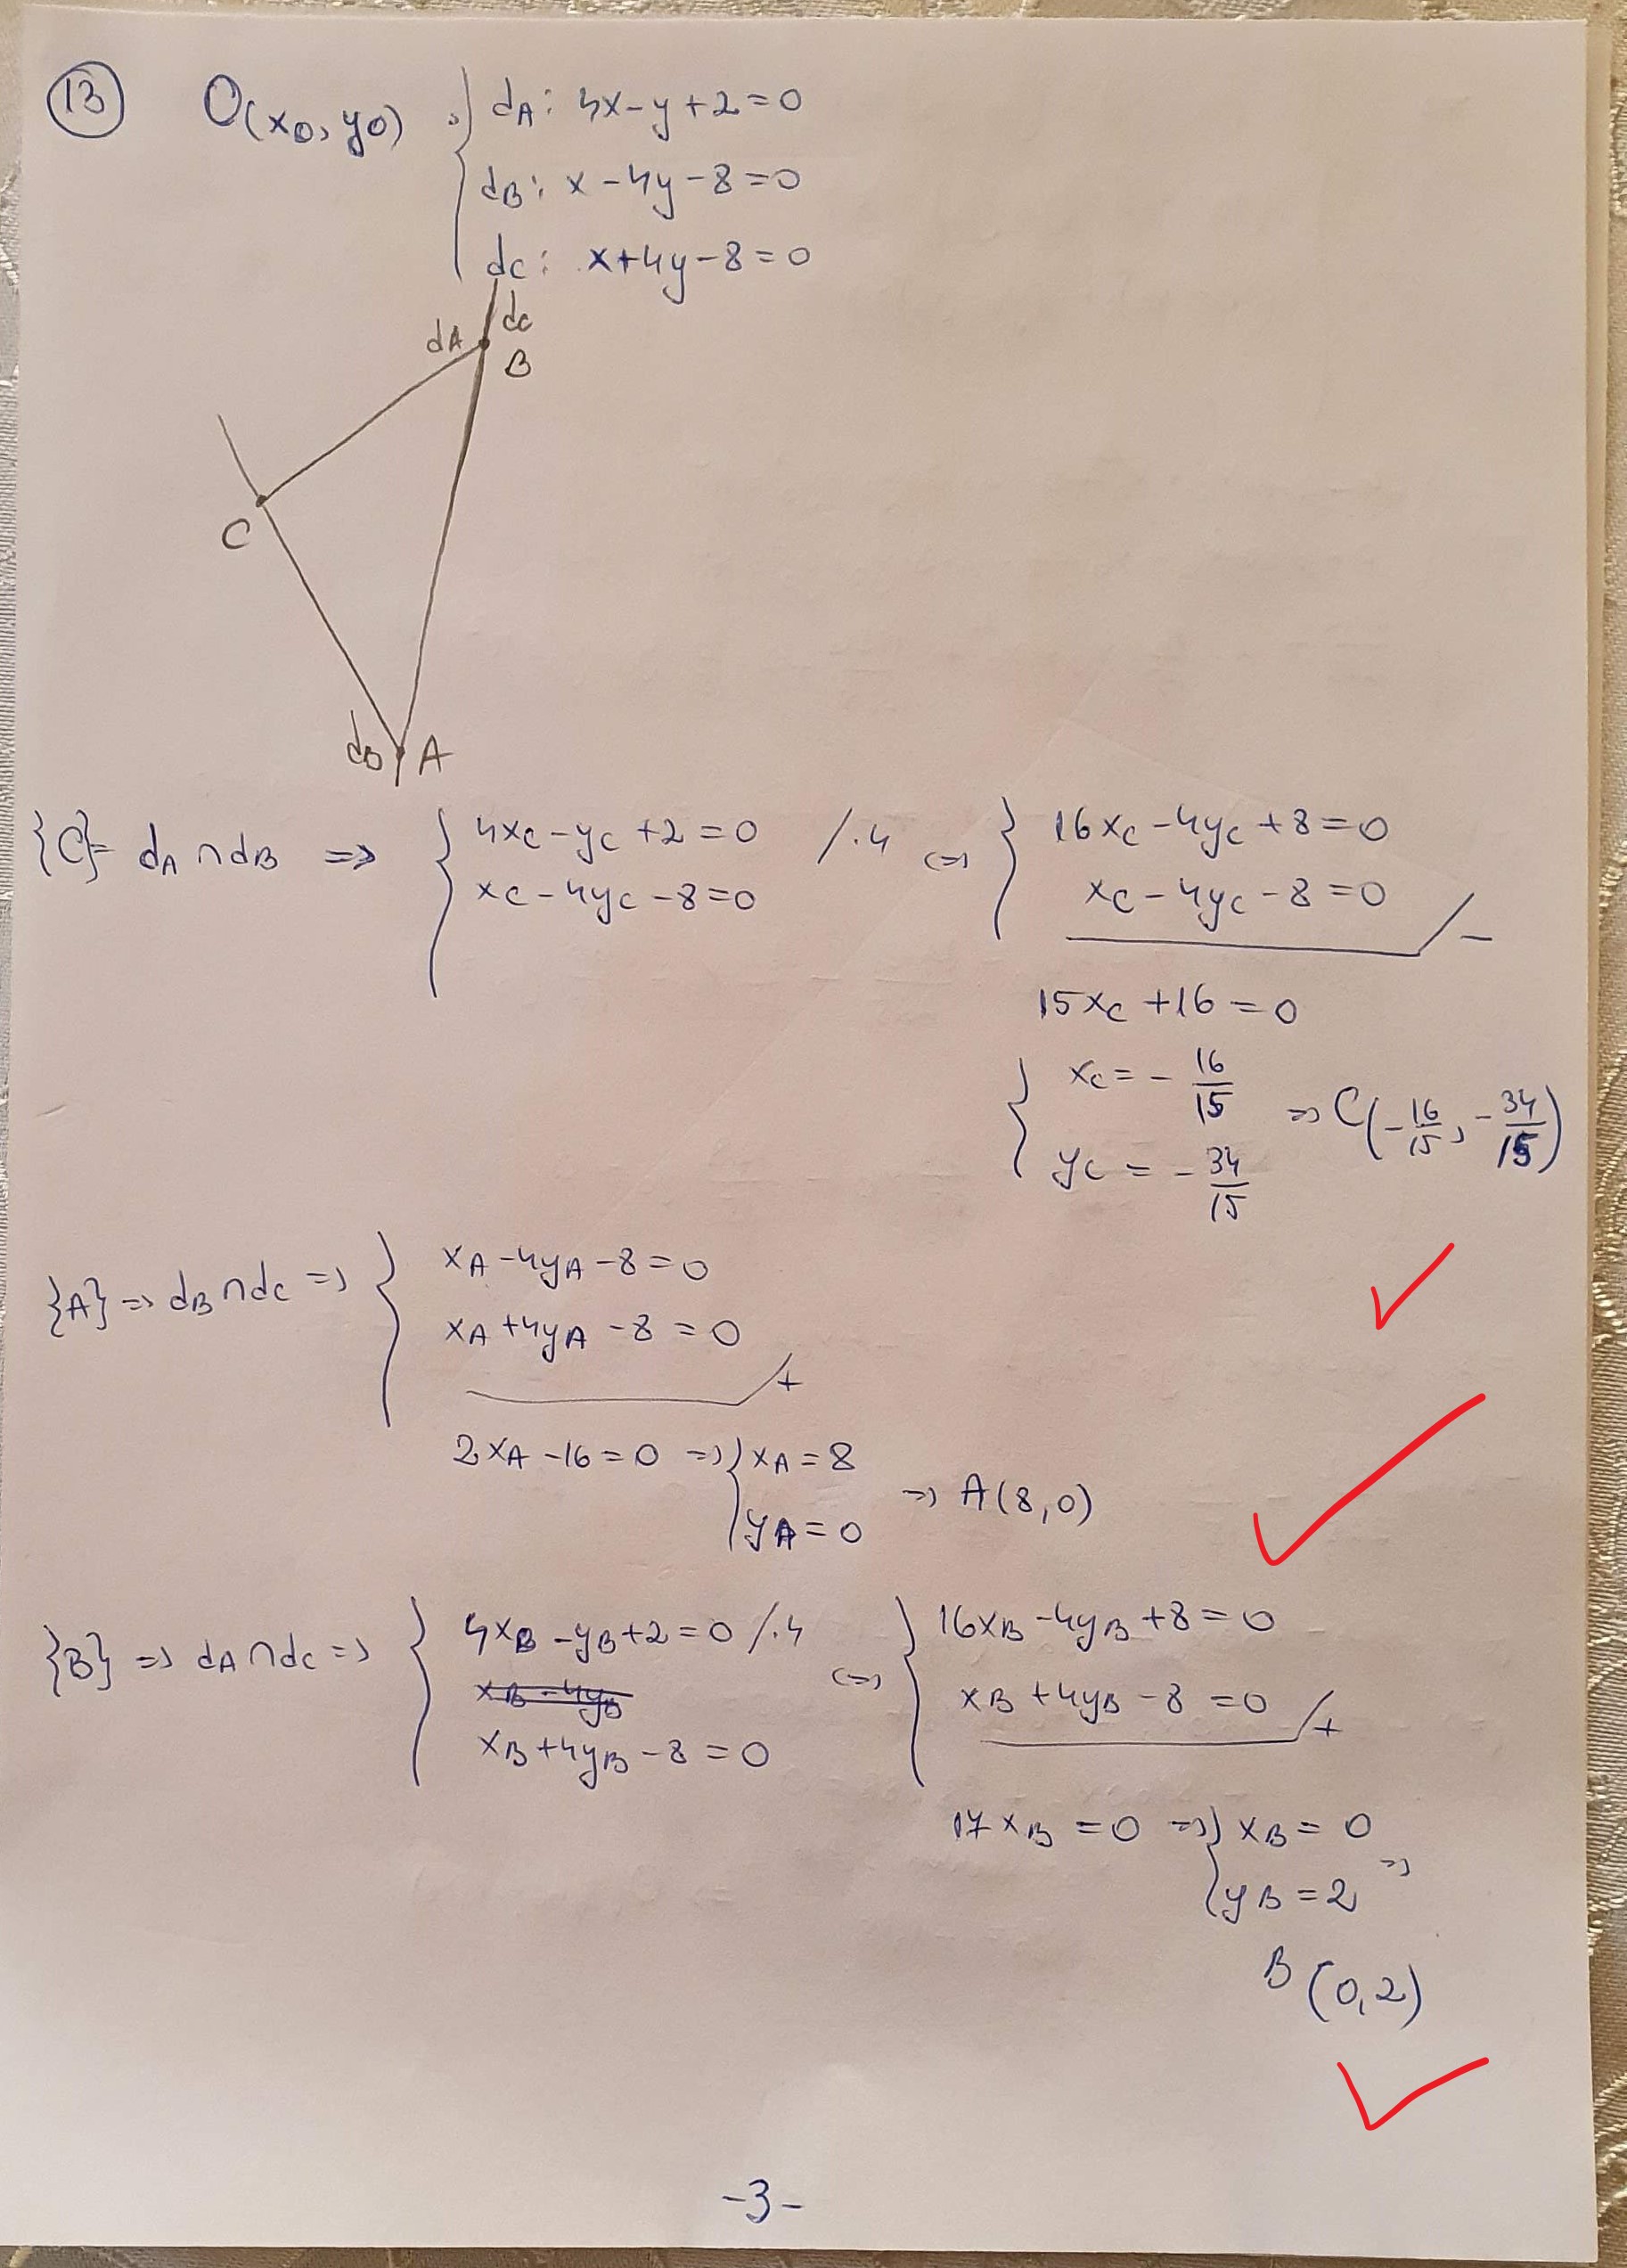 13 O(x₀, y₀) { dA: 4x-y+2=0
dB: x-4y-8=0
dC: x+4y-8=0
dA dC
B
C
dB A
{C}= dA ∩ dB => { 4xC-yC+2=0 /·4 <=> { 16xC-4yC+8=0
xC-4yC-8=0 xC-4yC-8=0 /-
15xC+16=0
{ xC = -16/15 => C(-16/15, -34/15)
yC = -34/15
{A} => dB ∩ dC => { xA-4yA-8=0
xA+4yA-8=0 /+
2xA-16=0 => { xA=8
yA=0 => A(8,0)
{B} => dA ∩ dC => { 4xB-yB+2=0 /·4 <=> { 16xB-4yB+8=0
xB-4yB
xB+4yB-8=0 xB+4yB-8=0 /+
17xB=0 => { xB=0
yB=2 =>
B(0,2)
-3-